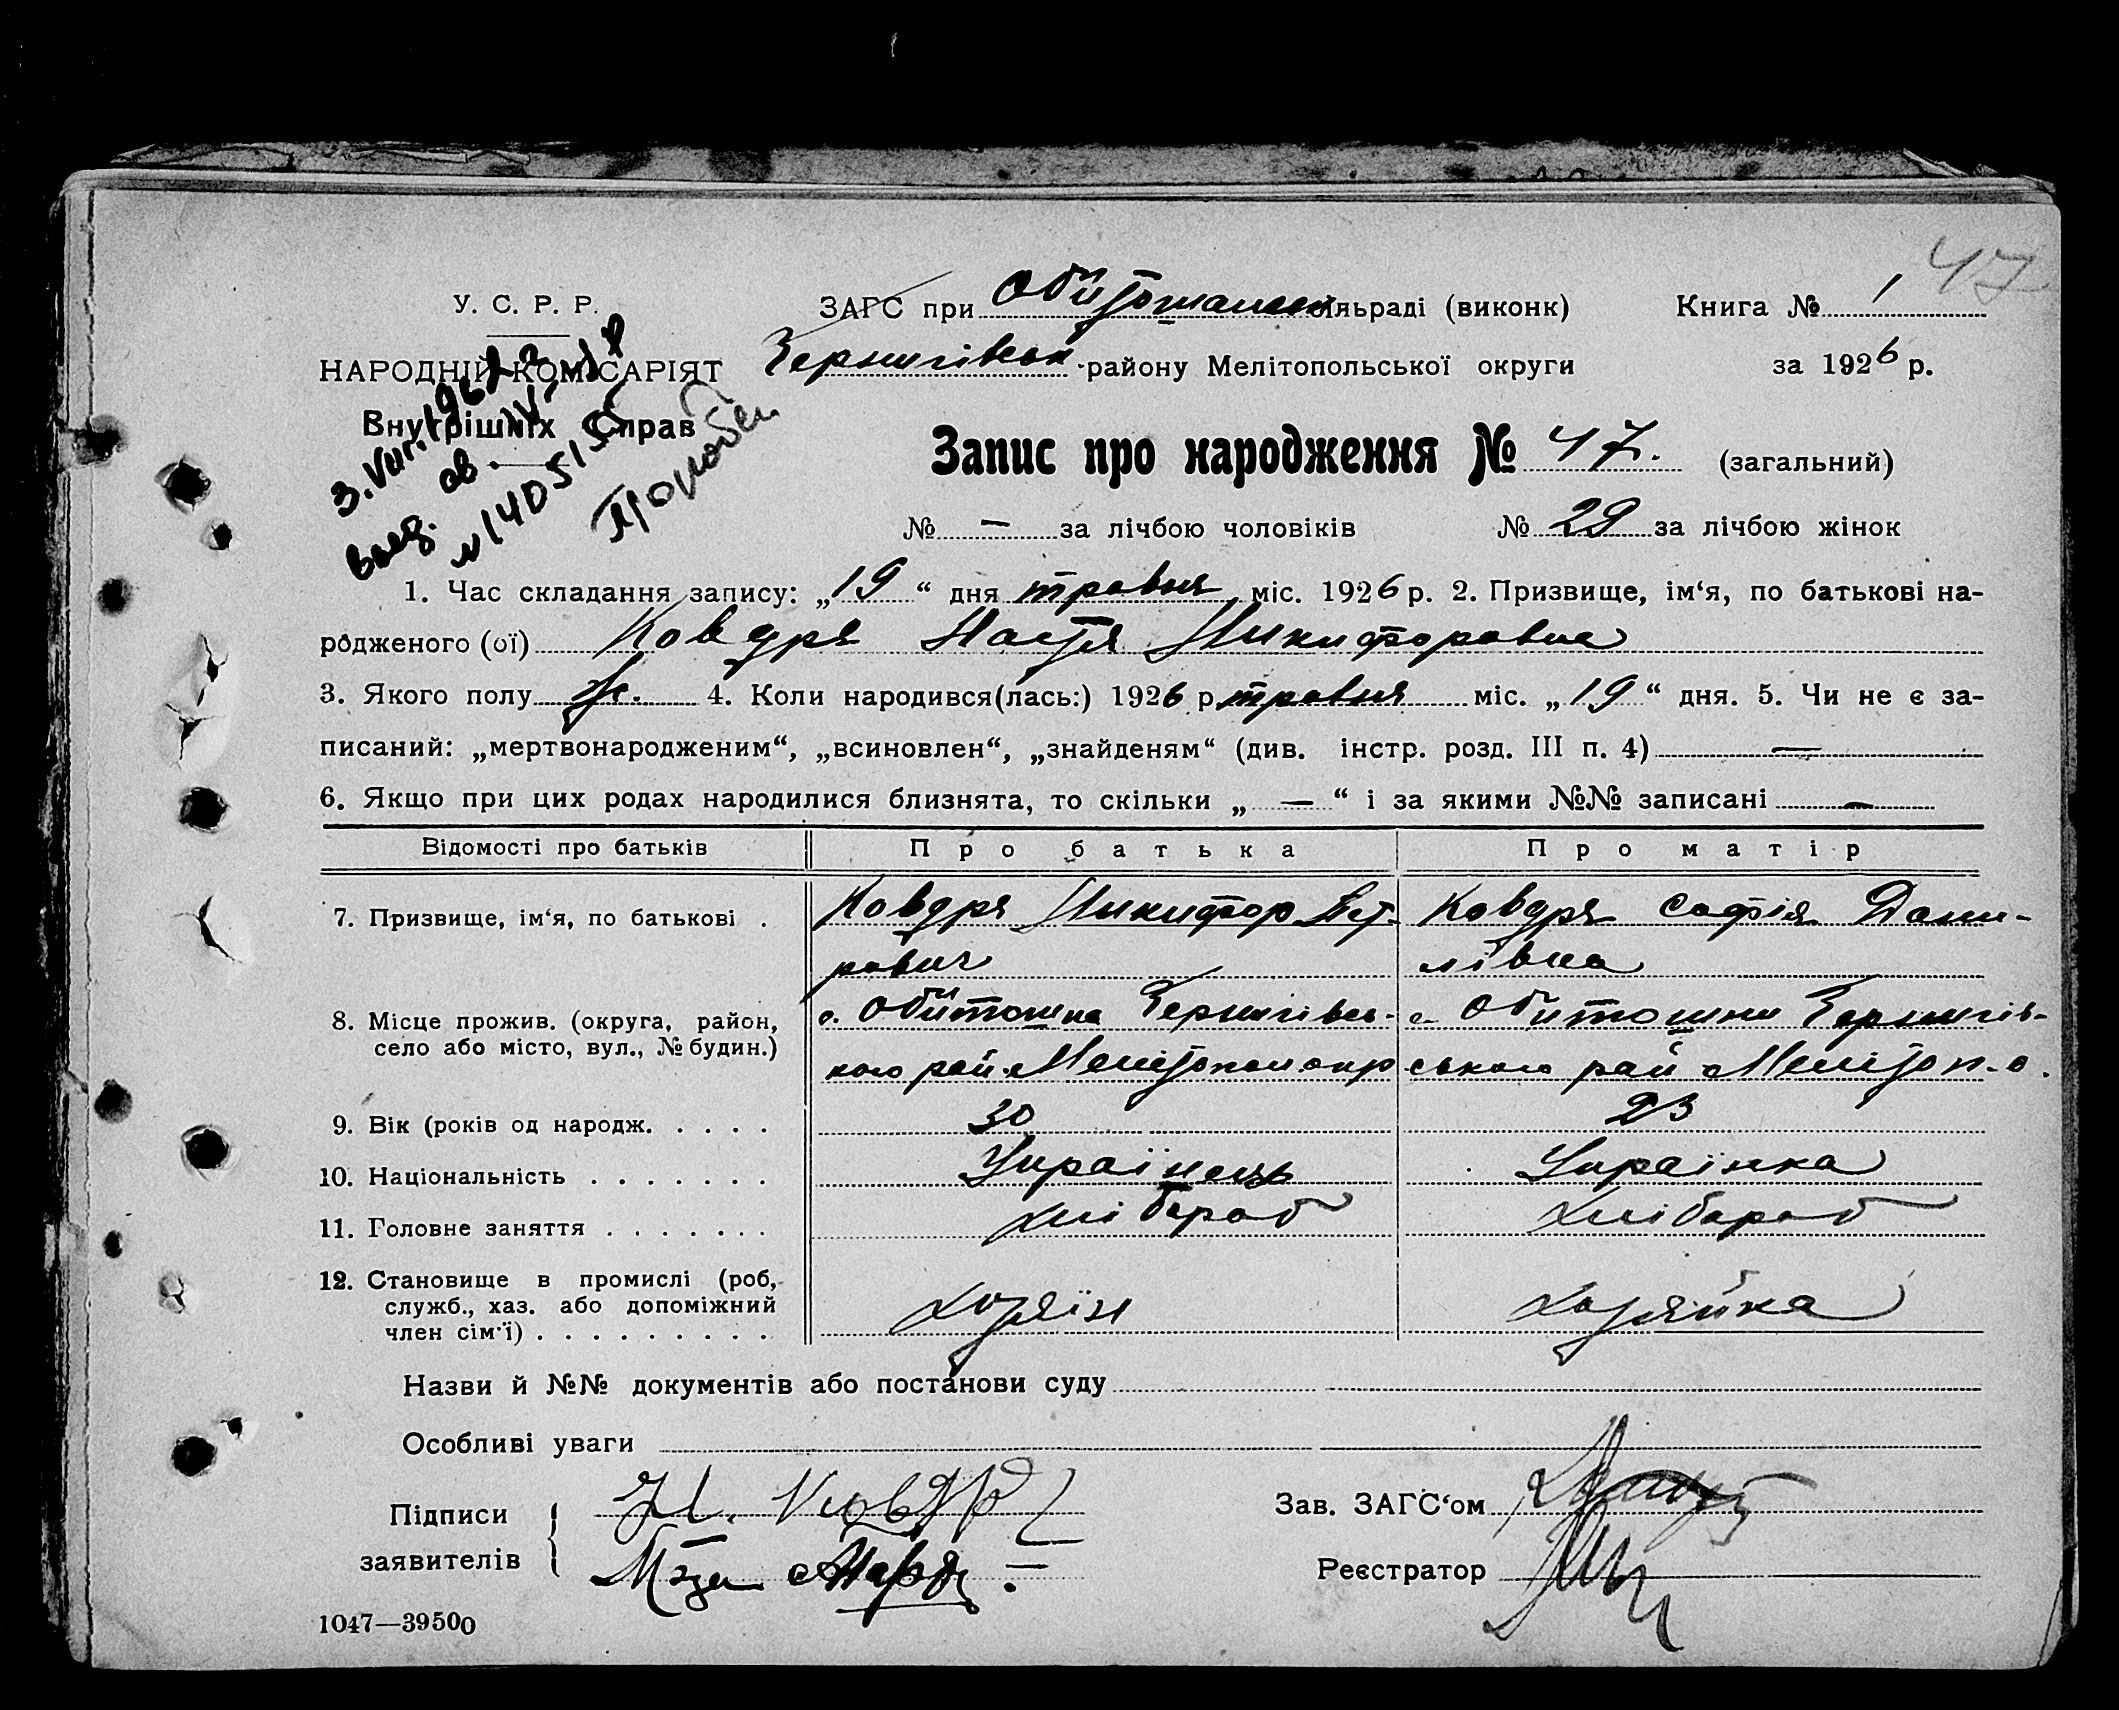 47
У. С. Р. Р.
ЗАГС при Обитошанськ сільраді (виконк)
Книга № 1
НАРОДНІЙ КОМІСАРІЯТ
Чернигівськ району Мелітопольської округи
за 1926 р.
Внутрішніх Справ
Запис про народження № 47. (загальний)
№ — за лічбою чоловіків № 29 за лічбою жінок
1. Час складання запису: „19“ дня травня міс. 1926 р. 2. Призвище, ім‘я, по батькові на-
родженого (ої) Ковдря Настя Никифоровна
3. Якого полу ж. 4. Коли народився(лась:) 1926 р. травня міс. „19“ дня. 5. Чи не є за-
писаний: „мертвонародженим“, „всиновлен“, „знайденям“ (див. інстр. розд. III п. 4) —
6. Якщо при цих родах народилися близнята, то скільки „ — “ і за якими №№ записані —
Відомості про батьків
Про батька
Про матір
7. Призвище, ім‘я, по батькові .
Ковдря Никифор Пет-
рович
Ковдря Софія Дани-
лівна
8. Місце прожив. (округа, район,
село або місто, вул., № будин.)
с. Обитошна Чернигівсь-
кого рай. Мелітопол окр
с. Обитошни Чернигів-
ського рай Меліто п. о.
9. Вік (років од народж. . . . .
30
23
10. Національність . . . . . . .
Українець
Українка
11. Головне заняття . . . . . . .
хлібороб
хлібороб
12. Становище в промислі (роб,
служб., хаз. або допоміжний
член сім‘ї) . . . . . . . . .
хозяїн
хозяйка
Назви й №№ документів або постанови суду
Особливі уваги
Підписи
заявителів
Н. Ковдря
Зав. ЗАГС‘ом
Реєстратор
1047—39500